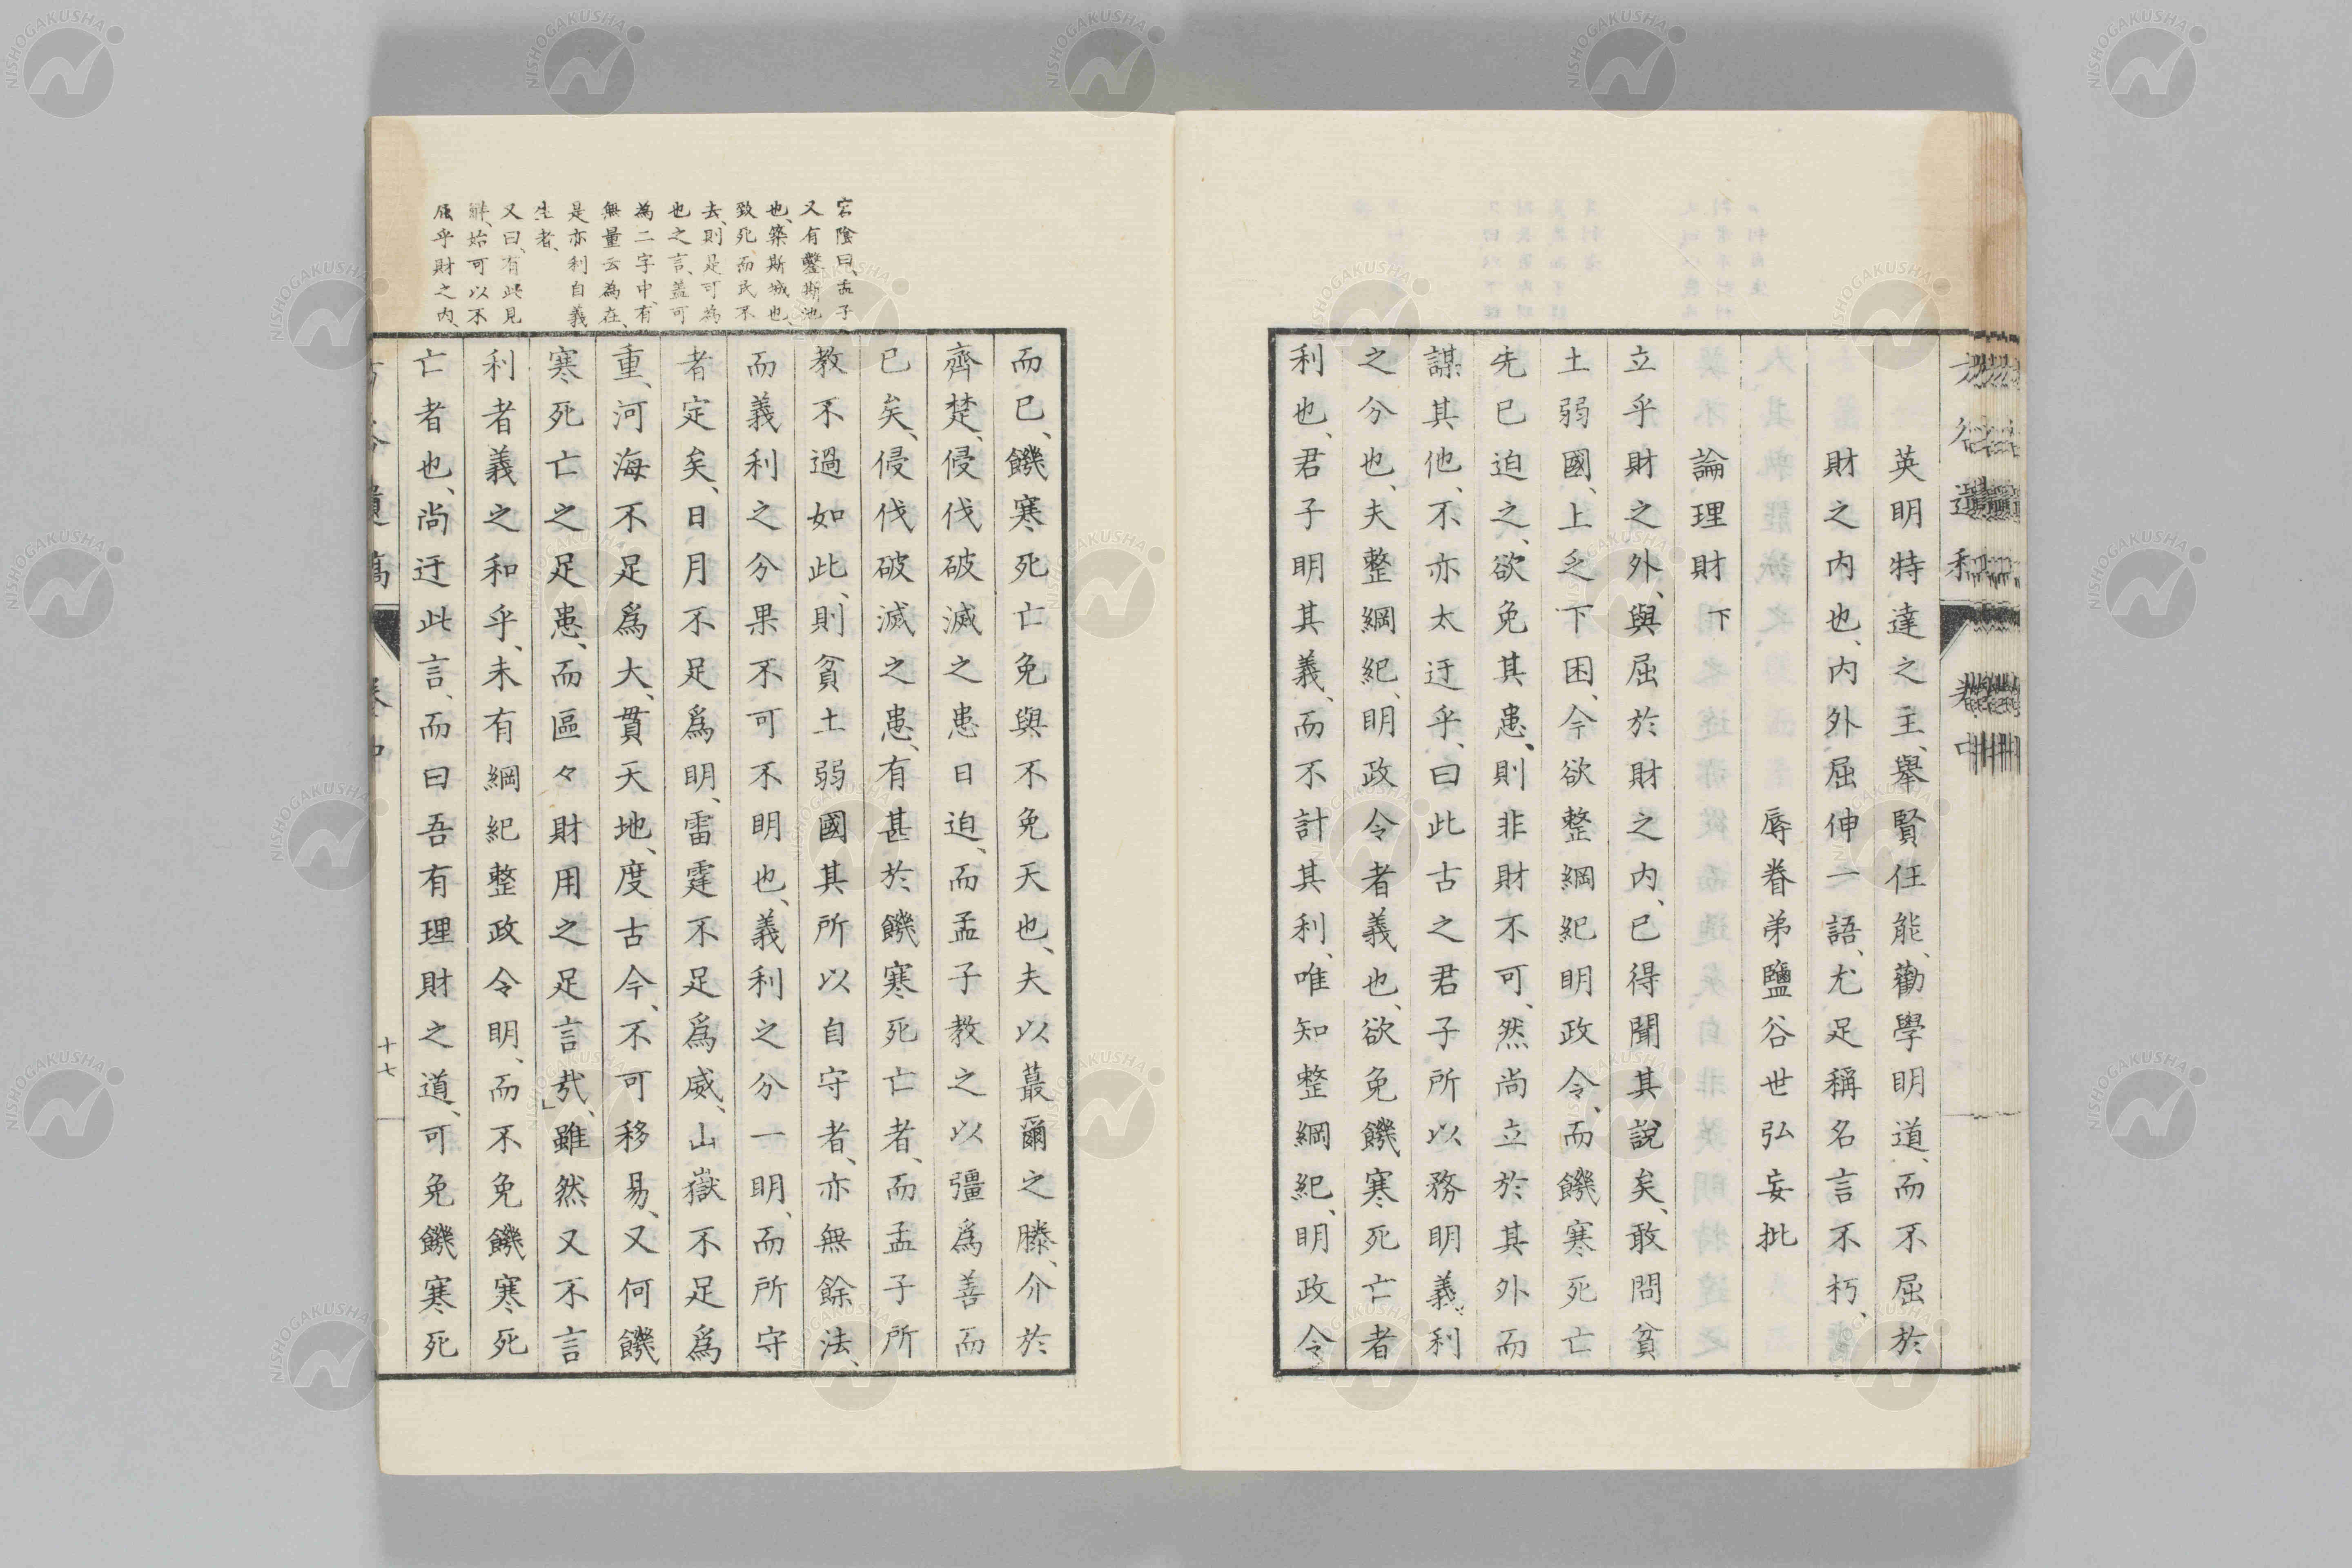 英明特達之主、舉賢任能、勸學明道、而不屈於
財之內也、內外屈伸一語、尤足稱名言不朽、
辱眷弟鹽谷世弘妄批
論理財 下
立乎財之外、與屈於財之內、已得聞其說矣、敢問貧
土弱國、上乏下困、今欲整綱紀明政令、而饑寒死亡
先已迫之、欲免其患、則非財不可、然尚立於其外而
謀其他、不亦太迂乎、曰此古之君子所以務明義利
之分也、夫整綱紀、明政令者義也、欲免饑寒死亡者
利也、君子明其義、而不計其利、唯知整綱紀、明政令
宕陰曰、孟子
又有鑿斯池
也、築斯城也、
致死而民不
去、則是可為
也之言、蓋可
為二字中、有
無量云為在、
是亦利自義
生者、
又曰、有此見
解、始可以不
屈乎財之內、
而已、饑寒死亡免與不免天也、夫以蕞爾之滕、介於
齊楚、侵伐破滅之患日迫、而孟子教之以彊為善而
已矣、侵伐破滅之患、有甚於饑寒死亡者、而孟子所
教不過如此、則貧土弱國其所以自守者、亦無餘法、
而義利之分果不可不明也、義利之分一明、而所守
者定矣、日月不足爲明、雷霆不足爲威、山嶽不足爲
重、河海不足爲大、貫天地、度古今、不可移易、又何饑
寒死亡之足患、而區々財用之足言哉、」雖然又不言
利者義之和乎、未有綱紀整政令明、而不免饑寒死
亡者也、尚迂此言、而曰吾有理財之道、可免饑寒死
十七